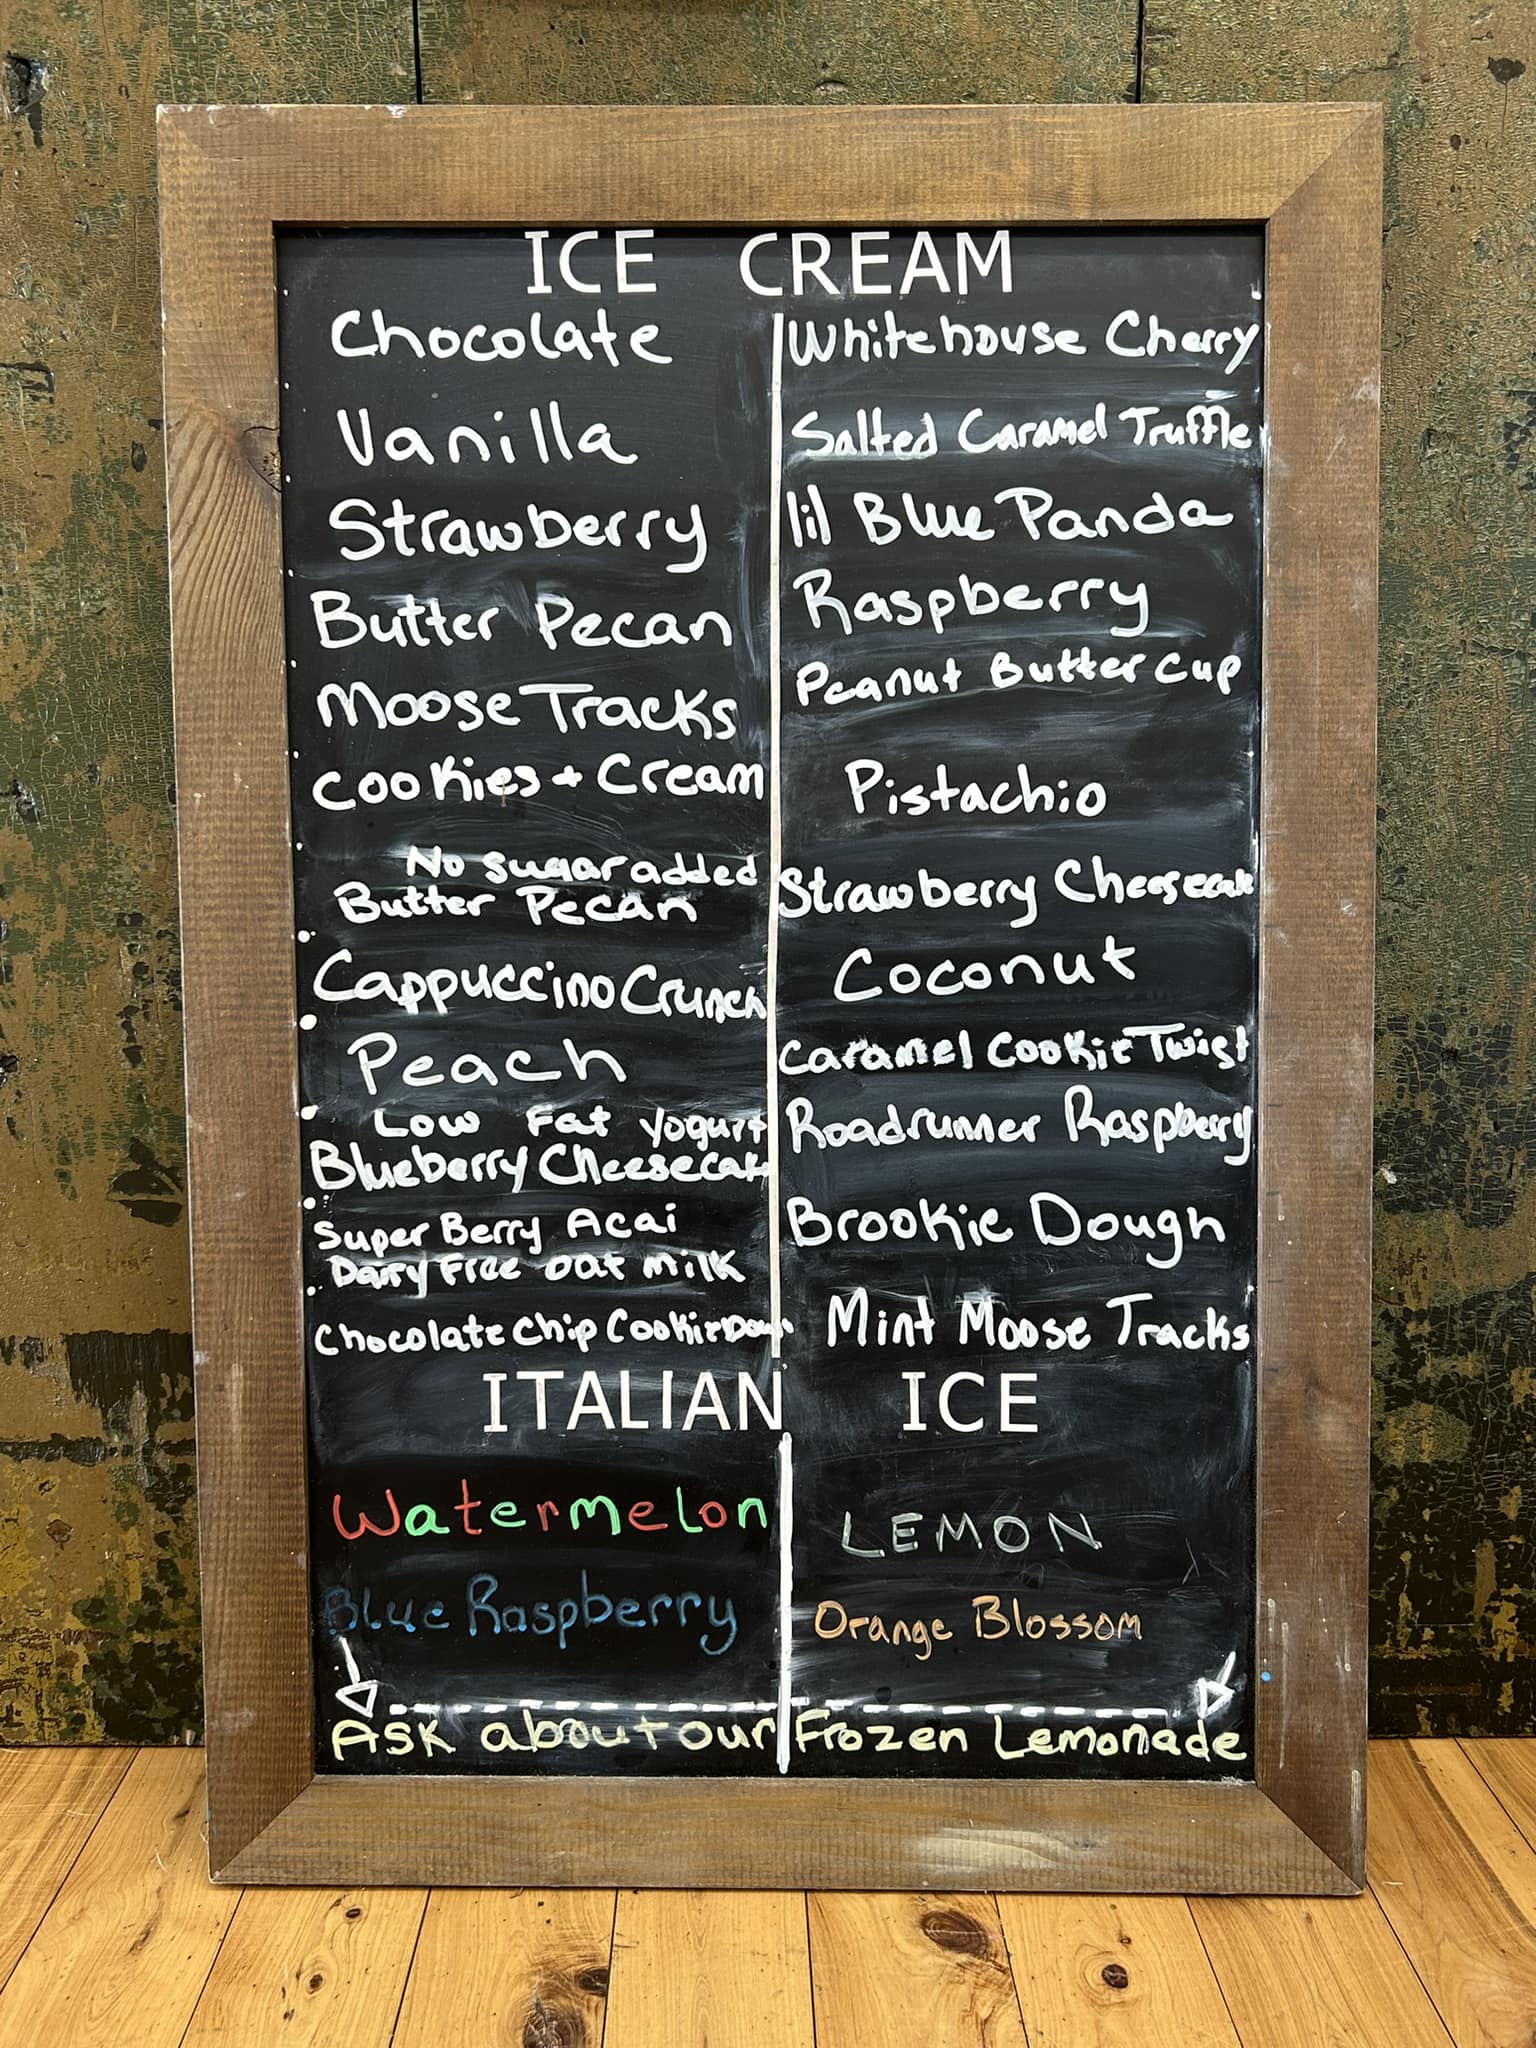 ICE CREAM
Chocolate
Vanilla
Strawberry
Butter Pecan
Moose Tracks
Cookies + Cream
No sugar added
Butter Pecan
Cappuccino Crunch
Peach
Low Fat Yogurt
Blueberry Cheesecake
Super Berry Acai
Dairy Free oat milk
Chocolate Chip Cookie Dough
Whitehouse Cherry
Salted Caramel Truffle
lil Blue Panda
Raspberry
Peanut Butter Cup
Pistachio
Strawberry Cheesecake
Coconut
Caramel Cookie Twist
Roadrunner Raspberry
Brookie Dough
Mint Moose Tracks
ITALIAN ICE
Watermelon
Blue Raspberry
LEMON
Orange Blossom
Ask about our Frozen Lemonade